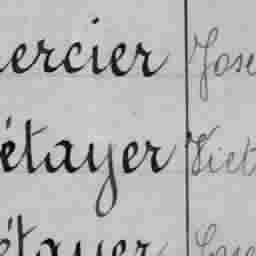 ercier Jose
étayer Vict
étayer Jose